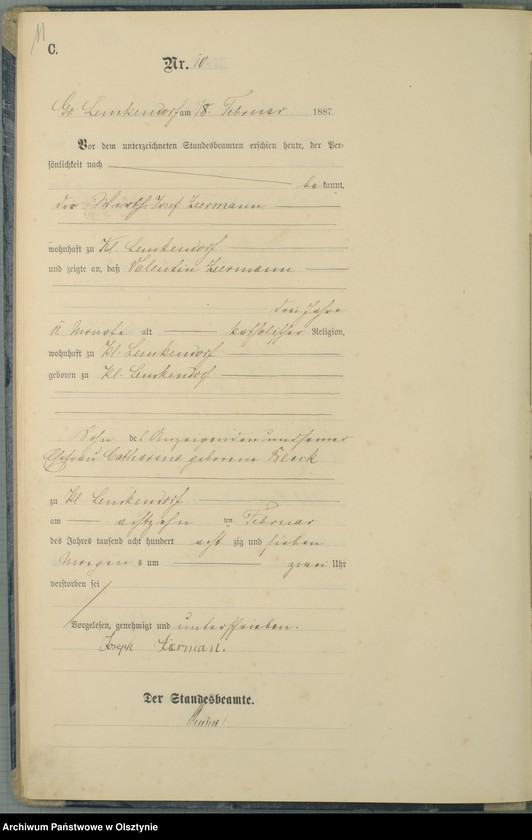 11
C.
Nr. 10
Gr. Lemkendorf am 18. Februar 1887.
Vor dem unterzeichneten Standesbeamten erschien heute, der Per-
sönlichkeit nach
be kannt,
der Wirth Josef Zeermann
wohnhaft zu Kl. Lemkendorf
und zeigte an, daß Valentin Zeermann
drei Jahre
Monate alt katholischer Religion,
wohnhaft zu Kl. Lemkendorf
geboren zu Kl. Lemkendorf
Sohn des Anzeigenden und seiner
Ehefrau Catharina geborene Block
zu Kl. Lemkendorf
am achtzehn ten Februar
des Jahres tausend acht hundert acht zig und sieben
Morgens um zwei Uhr
verstorben sei
Vorgelesen, genehmigt und unterschrieben.
Joseph
Der Standesbeamte.
Archiwum Państwowe w Olsztynie